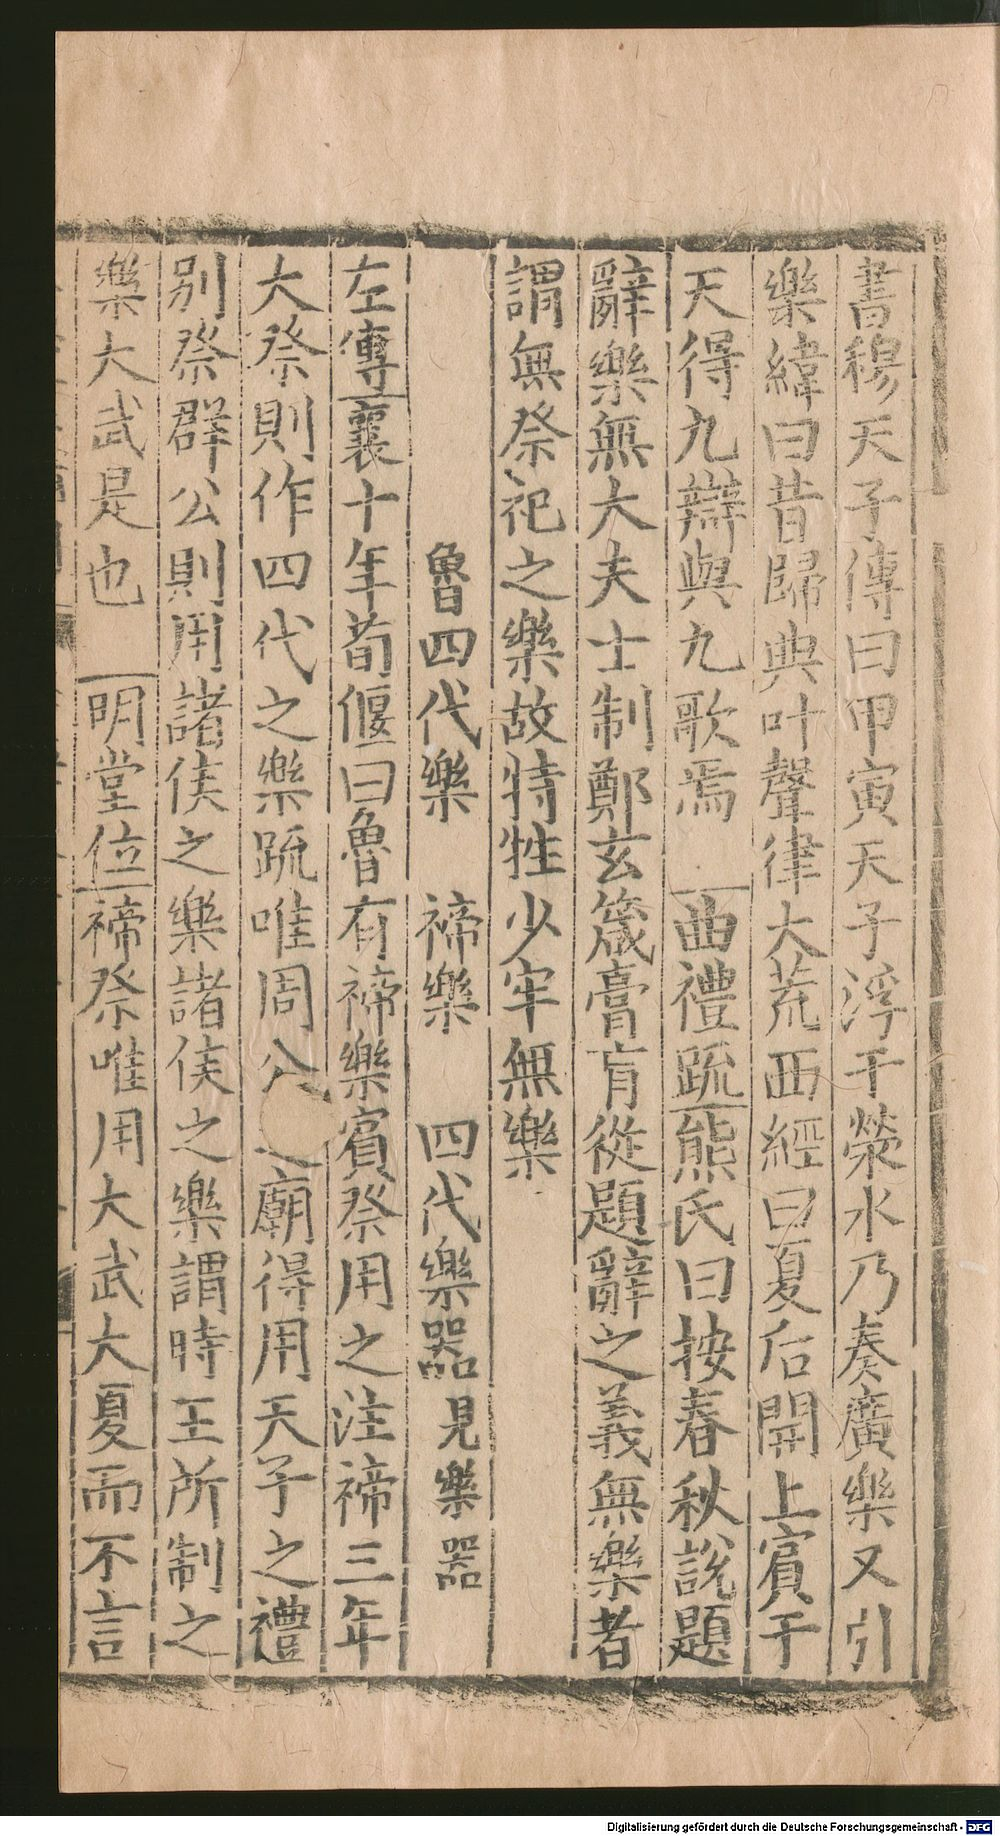 書穆天子傳曰甲寅天子浮于滎水乃奏廣樂又引
樂緯曰昔歸典叶聲律大荒西經曰夏后開上賓于
天得九辯與九歌焉　曲禮疏熊氏曰按春秋說題
辭樂無大夫士制鄭玄箴膏肓從題辭之義無樂者
謂無祭祀之樂故特牲少牢無樂
魯四代樂　禘樂　四代樂器見樂器
左傳襄十年荀偃曰魯有禘樂賓祭用之注禘三年
大祭則作四代之樂疏唯周公廟得用天子之禮
別祭群公則用諸侯之樂諸侯之樂謂時王所制之
樂大武是也　明堂位禘祭唯用大武大夏而不言
Digitalisierung gefördert durch die Deutsche Forschungsgemeinschaft - DFG